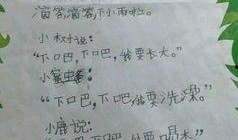 滴答滴答,下小雨啦。
小树说:
"下吧,下吧,我要长大。"
小蜜虫
"下吧,下吧,我要洗澡。"
小鹿说: